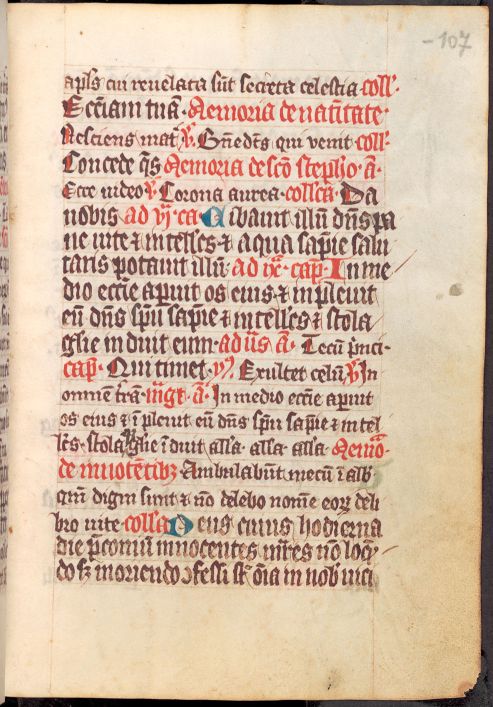 -107
apl̅s cui reuelata su̅t secreta celestia coll̅
Eccl̅iam tua̅ · Memoria de natiuitate
Nesciens mat̅ ℣. B̅nedc̅s qui venit coll̅
Concede qs̅ Memoria de sc̅o stepho · a̅
Ecce video ℣ Corona aurea · coll̅ca · Da
nobis ad vj ca Cibauit illu̅ dn̅s pa
ne uite & intelles · & aqua sapie̅ salu
taris potauit illu̅ · ad ix · cap̅ · In me
dio eccl̅ie aperuit os eius · & impleuit
eu̅ dn̅s spu̅ sapie̅ & intell̅es & stola
glie̅ induit eum · ad ii̅s a̅ · Tecu̅ p̅nci-
cap̅ · Qui timet · ℣ Exultet celu̅ ℣ In
omnem t̅ra̅ · m̅gt · a̅ · In medio eccl̅ie aperuit
os eius & i̅pleuit eu̅ dn̅s spu̅ sapie̅ & intel
le̅s · stola glie̅ i̅duit all̅a · all̅a all̅a Memo̅-
de innoce̅tibꝫ · Ambulabu̅t mecu̅ i̅ alb̅
qm̅ digni sunt & no̅ delebo nom̅e eoꝝ de li
bro uite · coll̅ca Deus cuius hodierna
die p̅coniu̅ innocentes m̅res no̅ loq̅n
do sꝫ moriendo ꝯfessi st̅ o̅ia in nob̅ uici